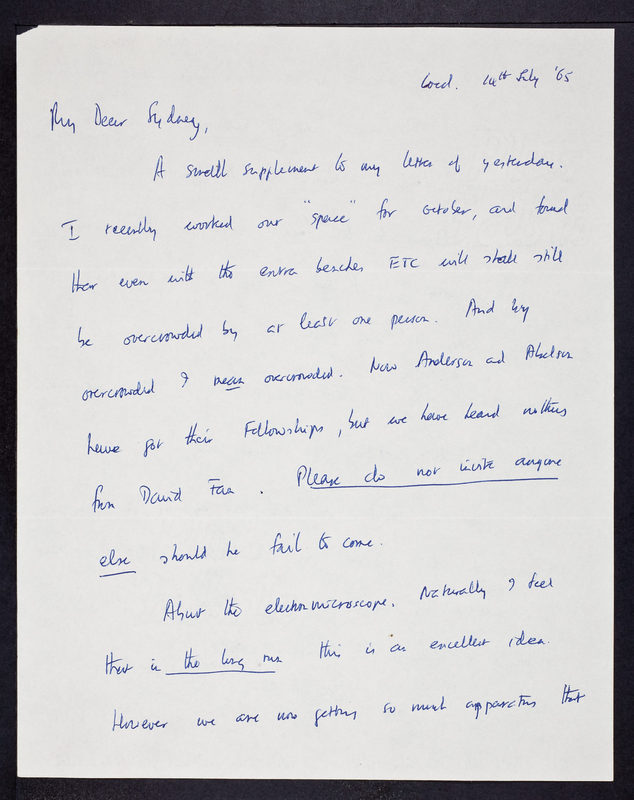 14th July '65
My Dear Sydney,
A small supplement to my letter of yesterday.
I recently worked our "space" for October, and found
that even with the extra benches ETC will still
be overcrowded by at least one person. And by
overcrowded I mean overcrowded. Now Anderson and Abelson
have got their Fellowships, but we have heard nothing
from David . Please do not invite anyone
else should he fail to come.
About the electron microscope. Naturally I feel
that in the long run this is an excellent idea.
However we are now getting so much apparatus that